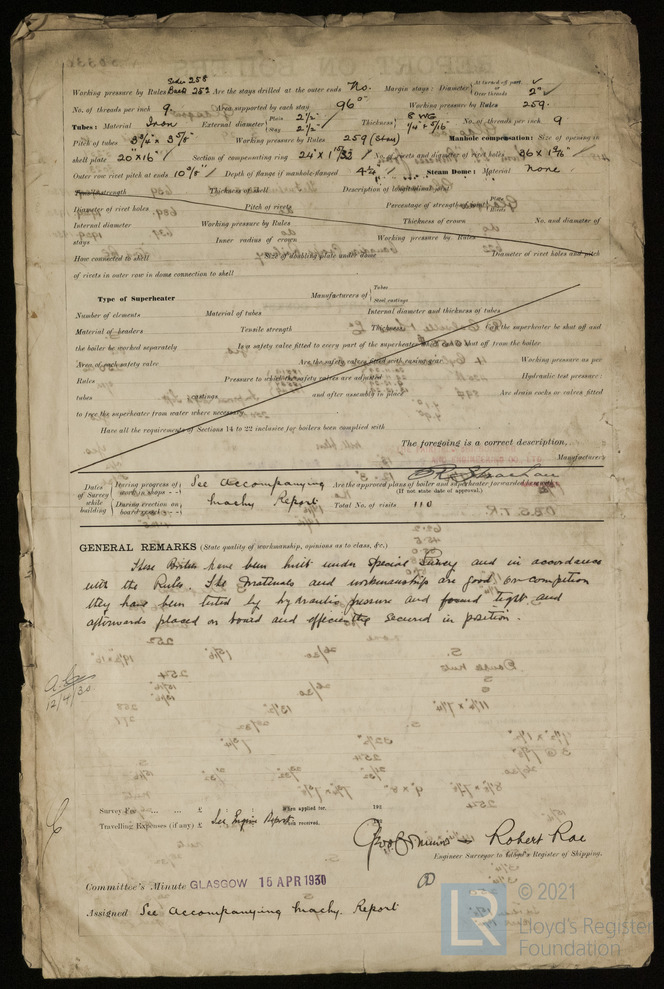 Sides 258
Working pressure by Rules Back 252 Are the stays drilled at the outer ends No. Margin stays: Diameter { At turned off part, or Over threads 2"
No. of threads per inch 9. Area supported by each stay 96" Working pressure by Rules 259.
Tubes: Material Iron External diameter { Plain 2½" Stay 2½" Thickness { 8 WG ¼" + 5/16" No. of threads per inch 9
Pitch of tubes 3¾" x 3⅝" Working pressure by Rules 259 (Stay) Manhole compensation: Size of opening in
shell plate 20" x 16" Section of compensating ring 24" x 1 15/32 No. of rivets and diameter of rivet holes 36 x
Outer row rivet pitch at ends 10⅝" Depth of flange if manhole flanged Steam Dome: Material none
Tensile strength Thickness of shell Description of longitudinal joint
Diameter of rivet holes Pitch of rivets Percentage of strength of joint { Plate Rivets
Internal diameter Working pressure by Rules Thickness of crown No. and diameter of
stays Inner radius of crown Working pressure by Rules
How connected to shell Size of doubling plate under dome Diameter of rivet holes and pitch
of rivets in outer row in dome connection to shell
Type of Superheater Manufacturers of { Tubes Steel castings
Number of elements Material of tubes Internal diameter and thickness of tubes
Material of headers Tensile strength Thickness Can the superheater be shut off and
the boiler be worked separately Is a safety valve fitted to every part of the superheater which can be shut off from the boiler
Area of each safety valve Are the safety valves fitted with easing gear Working pressure as per
Rules Pressure to which the safety valves are adjusted Hydraulic test pressure:
tubes castings and after assembly in place Are drain cocks or valves fitted
to free the superheater from water where necessary
Have all the requirements of Sections 14 to 22 inclusive for boilers been complied with
The foregoing is a correct description,
Manufacturer.
Dates of Survey while building { During progress of work in shops - - During erection on board vessel - - } See Accompanying Machy Report Are the approved plans of boiler and superheater forwarded herewith (If not state date of approval.)
Total No. of visits 110
GENERAL REMARKS (State quality of workmanship, opinions as to class, &c.)
These Boilers have been built under Special Survey and in accordance
with the Rules. The materials and workmanship are good, on completion
they have been tested by hydraulic pressure and found tight and
afterwards placed on board and efficiently secured in position.
12/4/30.
Survey Fee ... ... £ See Engine Report When applied for, 192
Travelling Expenses (if any) £ When received, 192
Robert Rae
Engineer Surveyor to Lloyd's Register of Shipping.
Committee's Minute GLASGOW 15 APR 1930
Assigned See Accompanying Machy. Report
LR © 2021
Lloyd's Register
Foundation